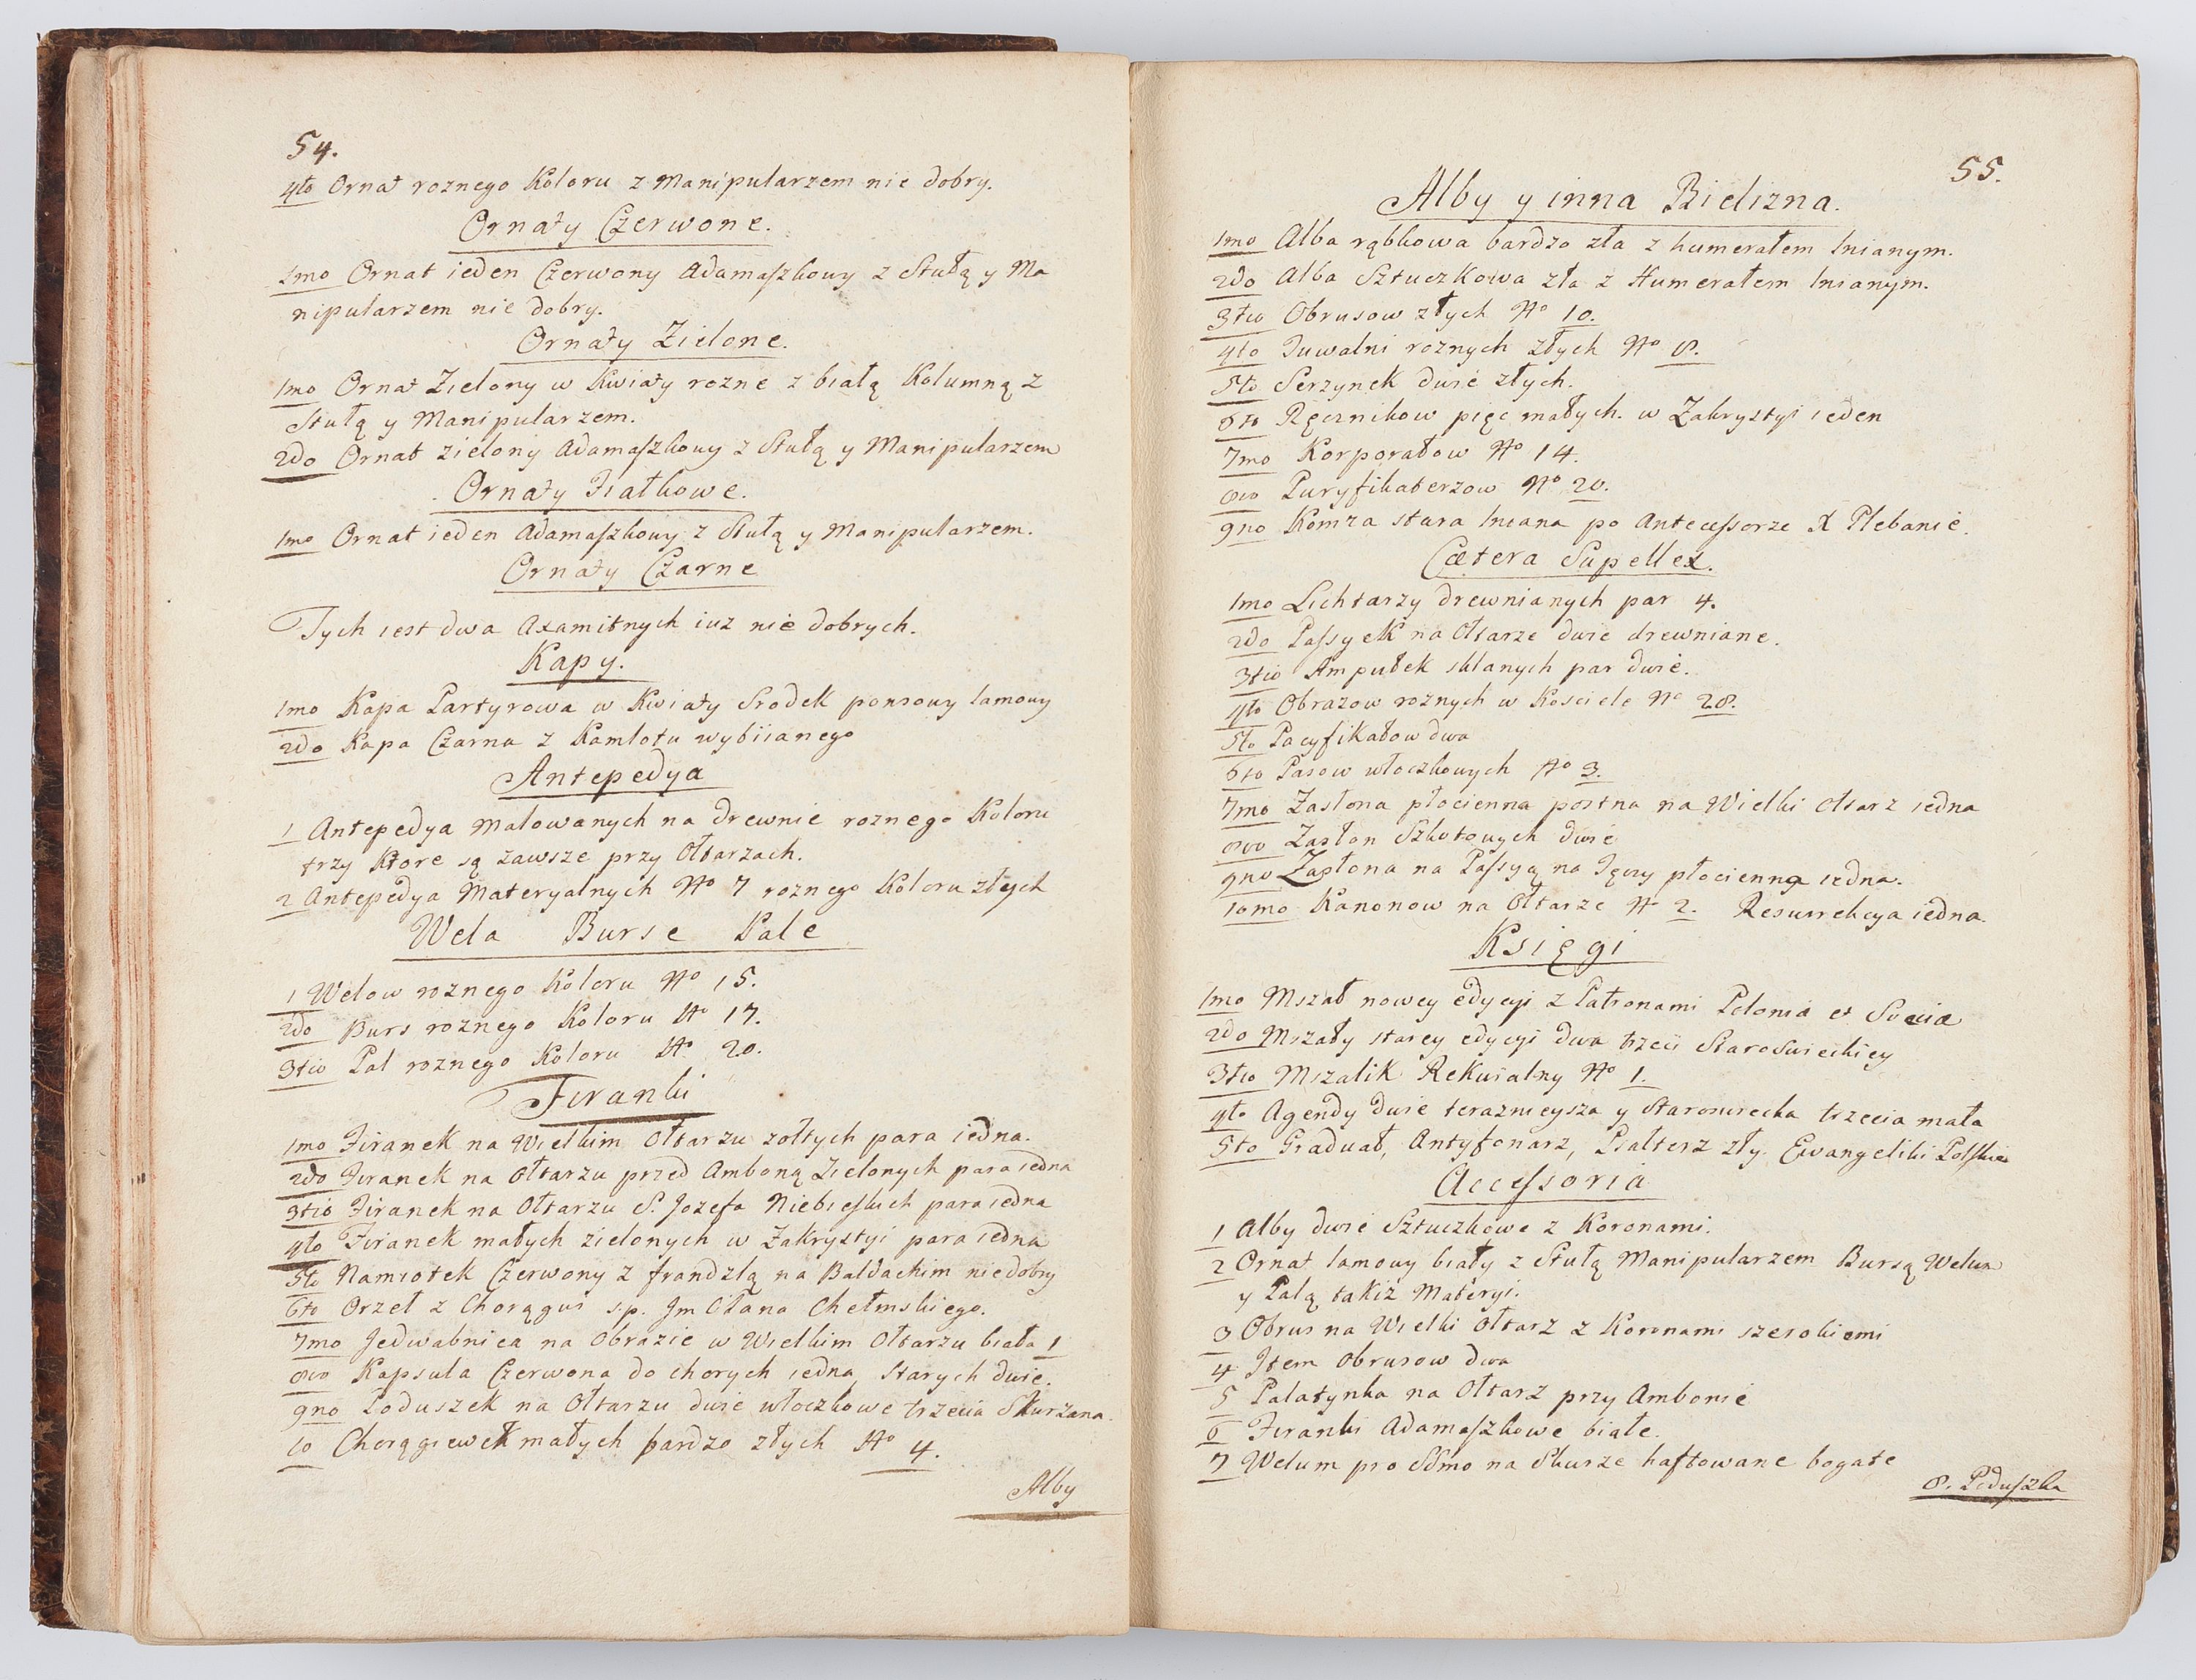 54.
4to Ornat roznego Koloru z Manipularzem nie dobry.
Ornaty Czerwone.
1mo Ornat ieden Czerwony Adamaszkowy z Stułą y Ma
nipularzem nie dobry.
Ornaty Zielone.
1mo Ornat Zielony w Kwiaty rozne z białą Kolumną z
Stułą y Manipularzem.
2do Ornat zielony Adamaszkowy z Stułą y Manipularzem
Ornaty Fiatkowe.
1mo Ornat ieden Adamaszkowy z Stułą y Manipularzem.
Ornaty Czarne
Tych iest dwa Axamitnych iuz nie dobrych.
Kapy.
1mo Kapa Partyrowa w Kwiaty Srodek ponsowy lamowy
2do Kapa Czarna z Kamlotu wybiianego
Antepedya
1 Antepedya Malowanych na drewnie roznego Koloru
trzy Ktore są zawsze przy Ołtarzach.
2 Antepedya Materyalnych No 7 roznego Koloru złych
Wela Burse Pale
1 Welow roznego Koloru No 15.
2do Burs roznego Koloru No 17.
3tio Pal roznego Koloru No 20.
Firanki
1mo Firanek na Wielkim Ołtarzu zołtych para iedna.
2do Firanek na Ołtarzu przed Amboną Zielonych para iedna
3tio Firanek na Ołtarzu S. Jozefa Niebieskich para iedna
4to Firanek małych zielonych w Zakrystyi para iedna
5to Namiotek Czerwony z frandzlą na Baldachim niedobry
6to Orzeł z Chorągwi s.p. Jm Pana Chełmskiego.
7mo Jedwabnica na Obrazie w Wielkim Ołtarzu biała 1
8vo Kapsula Czerwona do chorych iedna, Starych dwie.
9no Poduszek na Ołtarzu dwie włoczkowe trzecia Skurzana.
10 Chorągiewek małych bardzo złych No 4.
Alby
55.
Alby y inna Bielizna.
1mo Alba rąbkowa bardzo zła z humerałem lnianym.
2do Alba Sztuczkowa zła z Humerałem lnianym.
3tio Obrusow złych No 10.
4to Tuwalni roznych złych No 8.
5to Serzynek dwie złych.
6to Ręcznikow pięc małych. w Zakrystyi ieden
7mo Korporałow No 14.
8vo Puryfikaterzow No 20.
9no Komza stara lniana po Antecessorze X Plebanie.
Cætera Supellex.
1mo Lichtarzy drewnianych par 4.
2do Passyek na Ołtarze dwie drewniane.
3tio Ampułek sklanych par dwie.
4to Obrazow roznych w Kosciele No 28.
5to Pacyfikałow dwa
6to Pasow włoczkowych No 3.
7mo Zasłona płocienna postna na Wielki Ołtarz iedna
8vo Zasłon Szkotowych dwie
9no Zasłona na Passyą na Tęczy płocienna iedna.
10mo Kanonow na Ołtarze No 2. Resurrekcya iedna.
Księgi
1mo Mszał nowey edycyi z Patronami Polonia et Svecia
2do Mszały starey edycyi dwa trzeci Staroswieckiey
3tio Mszalik Rekwialny No 1.
4to Agendy dwie teraznieysza y Staroswiecka trzecia mała
5to Graduał, Antyfonarz, Psałterz zły. Ewangeliki Polskie
Accessoria
1 Alby dwie Sztuczkowe z Koronami.
2 Ornat lamowy biały z Stułą Manipularzem Bursą Welum
y Palą takiz Materyi.
3 Obrus na Wielki Ołtarz z Koronami szerokiemi
4 Item Obrusow dwa
5 Palatynka na Ołtarz przy Ambonie
6 Firanki Adamaszkowe białe.
7 Welum pro SSmo na Skurze haftowane bogate
8. Poduszka